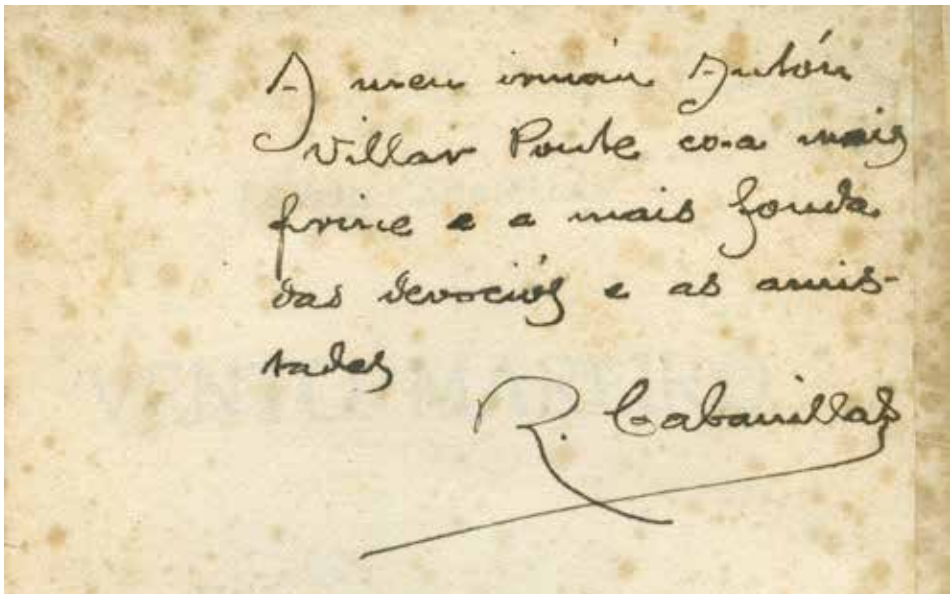 A meu irmáu Antón
Villar Ponte co-a mais
firme e a mais fonda
das devociós e as amis-
tades
R. Cabanillas